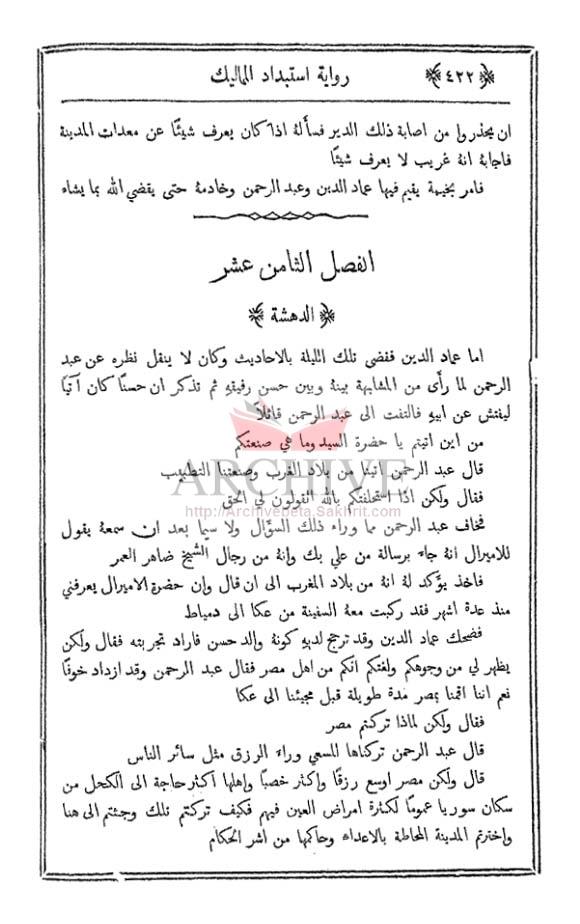 ﴿٤٢٢﴾ رواية استبداد المماليك
ان يحذروا من اصابة ذلك الدير فسألهُ اذا كان يعرف شيئًا عن معدات المدينة
فاجابهُ انهُ غريب لا يعرف شيئًا
فامر بخيمة يقيم فيها عماد الدين وعبد الرحمن وخادمهُ حتى يقضي الله بما يشاء
الفصل الثامن عشر
﴿الدهشة﴾
اما عماد الدين فقضى تلك الليلة بالاحاديث وكان لا ينقل نظره عن عبد
الرحمن لما رأى من المشابهة بينهُ وبين حسن رفيقهِ ثم تذكر ان حسنًا كان آتيًا
ليفتش عن ابيهِ فالتفت الى عبد الرحمن قائلاً
من اين اتيتم يا حضرة السيد وما هي صنعتكم
قال عبد الرحمن اتينا من بلاد الغرب وصنعتنا التطبيب
فقال ولكن اذا استحلفتكم بالله القولون لي الحق
فخاف عبد الرحمن مما وراء ذلك السؤال ولا سيما بعد ان سمعهُ يقول
للاميرال انهُ جاء برسالة من علي بك وانهُ من رجال الشيخ ضاهر العمر
فاخذ يؤكد لهُ انهُ من بلاد المغرب الى ان قال وإن حضرة الاميرال يعرفني
منذ عدة اشهر فقد ركبت معهُ السفينة من عكا الى دمياط
فضحك عماد الدين وقد ترجح لديهِ كونهُ والد حسن فاراد تجربته فقال ولكن
يظهر لي من وجوهكم ولغتكم انكم من اهل مصر فقال عبد الرحمن وقد ازداد خوفًا
نعم اننا اقمنا بمصر مدة طويلة قبل مجيئنا الى عكا
فقال ولكن لماذا تركتم مصر
قال عبد الرحمن تركناها للسعي وراء الرزق مثل سائر الناس
قال ولكن مصر اوسع رزقًا واكثر خصبًا واهلها أكثر حاجة الى الكحل من
سكان سوريا عمومًا لكثرة امراض العين فيهم فكيف تركتم تلك وجئتم الى هنا
واخترتم المدينة المحاطة بالاعداء وحاكمها من اشر الحكام
ARCHIVE
http://Archivebeta.Sakhrit.com